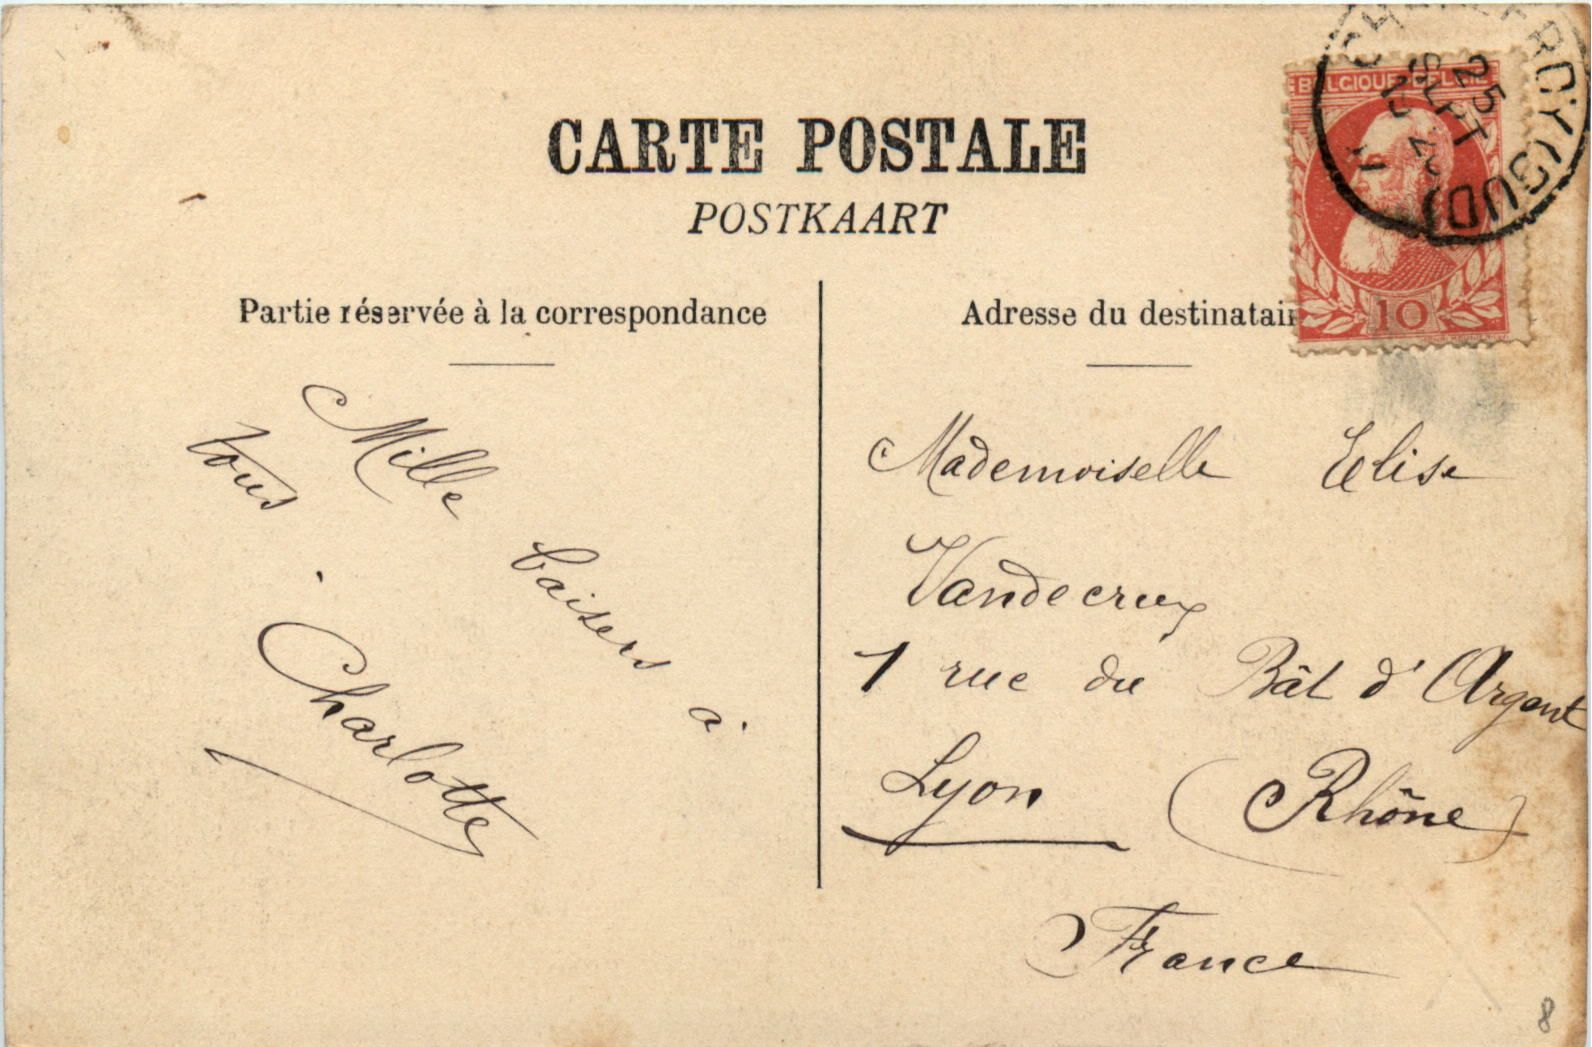 CARTE POSTALE
POSTKAART
Partie réservée à la correspondance
Mille baisers à
tous
Charlotte
Adresse du destinatair
Mademoiselle Elise
Vandecrux
1 rue du Bât d'Argent
Lyon (Rhône)
France
BELGIQUE BELGIE
10
CHARLEROY (SUD)
25
SEPT
11
8